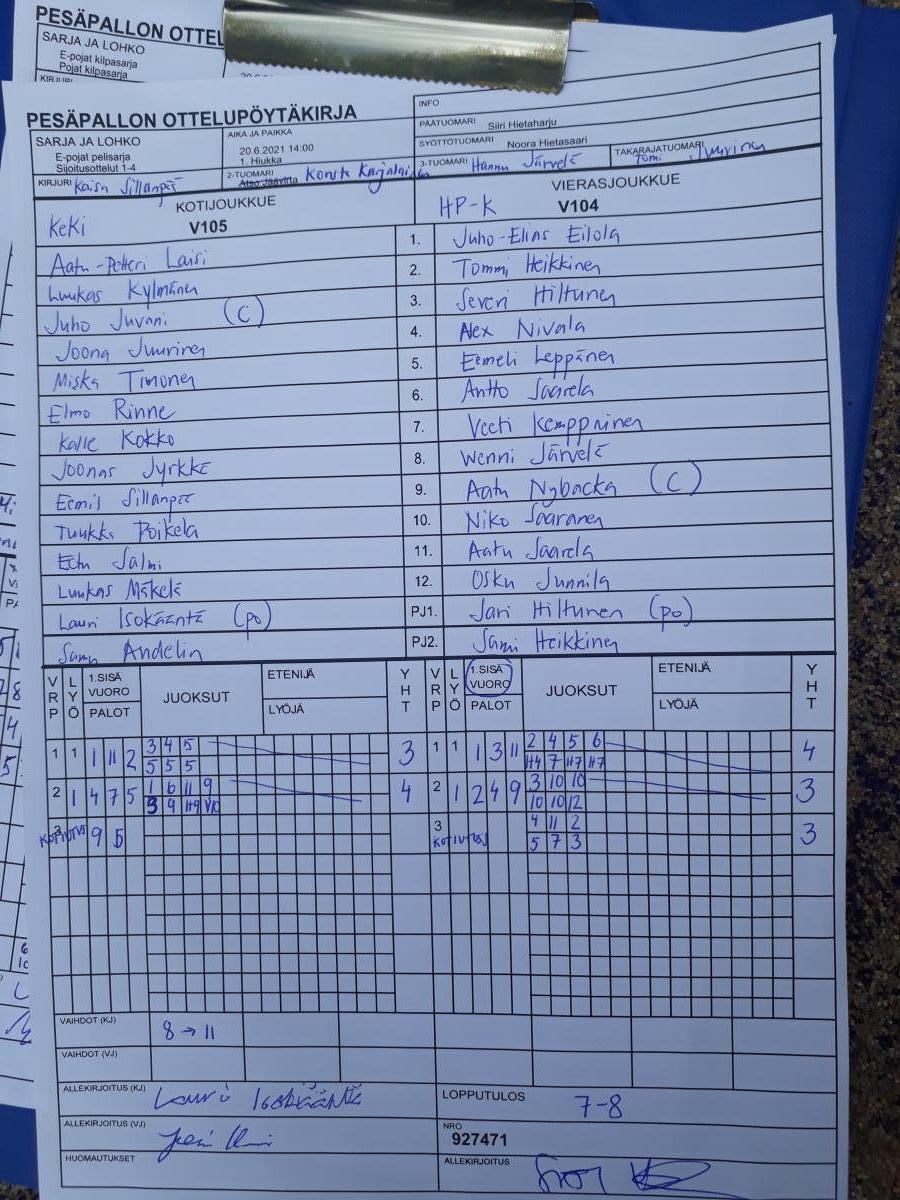 PESÄPALLON OTTEL
SARJA JA LOHKO
E-pojat kilpasarja
Pojat kilpasarja
KIRJURI
PESÄPALLON OTTELUPÖYTÄKIRJA
INFO
SARJA JA LOHKO
E-pojat pelisarja
Sijoitusottelut 1-4
AIKA JA PAIKKA
20.6.2021 14:00
1. Hiukka
PÄÄTUOMARI Siiri Hietaharju
SYÖTTÖTUOMARI Noora Hietasaari
KIRJURI Kaisa Sillanpää
2-TUOMARI Konsta Karjalainen
3-TUOMARI Hannu Järvelä
TAKARAJATUOMARI Tomi
KOTIJOUKKUE
VIERASJOUKKUE
KeKi V105
HP-K V104
Aatu-Petteri Laisi 1. Juho-Elias Eilola
Luukas Kylmänen 2. Tommi Heikkinen
Juho Juvani (C) 3. Severi Hiltunen
Joona Juurinen 4. Alex Nivala
Miska Timonen 5. Eemeli Leppänen
Elmo Rinne 6. Antto Saarela
Kalle Kokko 7. Veeti Kemppainen
Joonas Jyrkkä 8. Wenni Järvelä
Eemil Sillanpää 9. Aatu Nybacka (C)
Tuukka Poikela 10. Niko Saaranen
Eetu Salmi 11. Aatu Saarela
Luukas Mäkelä 12. Osku Junnila
Lauri Isokääntä (po) PJ1. Jari Hiltunen (po)
Samu Andelin PJ2. Sami Heikkinen
VRP LYÖ 1.SISÄ VUORO PALOT JUOKSUT ETENIJÄ LYÖJÄ YHT VRP LYÖ 1.SISÄ VUORO PALOT JUOKSUT ETENIJÄ LYÖJÄ YHT
3 4 5 2 4 5 6
1 1 1 11 2 3 1 1 1 3 11 4
5 5 5 H4 7 H7 H7
1 6 11 9 3 10 10
2 1 4 7 5 4 2 1 2 4 9 3
3 9 H9 V10 10 10 12
4 11 2
3 KOTIUTUS 9 5 3 KOTIUTUS 3
5 7 3
VAIHDOT (KJ) 8 → 11
VAIHDOT (VJ)
ALLEKIRJOITUS (KJ) Lauri Isokääntä
LOPPUTULOS 7-8
ALLEKIRJOITUS (VJ)
NRO
927471
HUOMAUTUKSET
ALLEKIRJOITUS